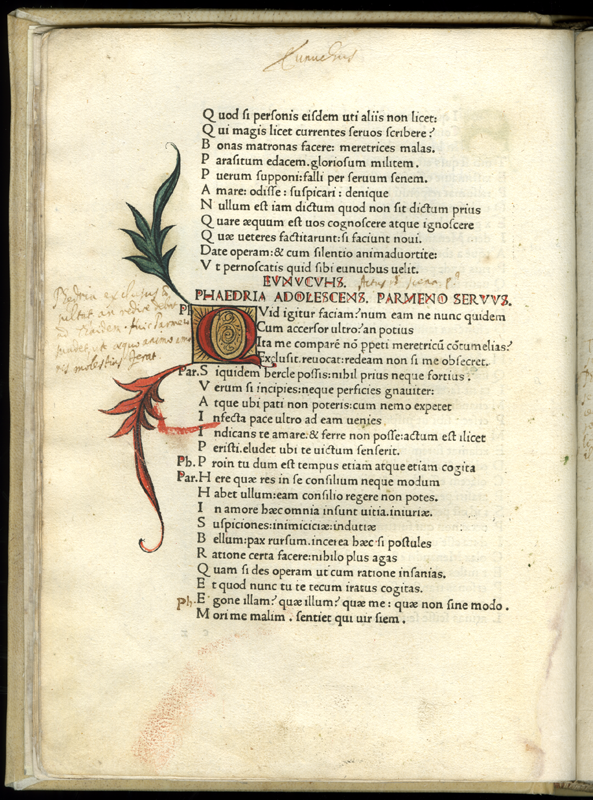 Eunuchus
Q uod si personis eisdem uti aliis non licet:
Q ui magis licet currentes seruos scribere?
B onas matronas facere: meretrices malas.
P arasitum edacem.gloriosum militem.
P uerum supponi:falli per seruum senem.
A mare: odisse: suspicari: denique
N ullum est iam dictum quod non sit dictum prius
Q uare æquum est uos cognoscere atque ignoscere
Q uæ ueteres factitarunt:si faciunt noui.
Date operam:& cum silentio animaduortite:
V t pernoscatis quid sibi eunuchus uelit.
EVNVCVHS.
PHAEDRIA ADOLESCENS. PARMENO SERVVS.
P Q Vid igitur faciam?num eam ne nunc quidem
Cum accersor ultro?an potius
Ita me comparē nō ppeti meretricū cōtumelias?
Exclusit.reuocat:redeam non si me obsecret.
Par.S iquidem hercle possis:nihil prius neque fortius.
V erum si incipies:neque perficies gnauiter:
A tque ubi pati non poteris:cum nemo expetet
I nfecta pace ultro ad eam uenies
I ndicans te amare:& ferre non posse:actum est ilicet
P eristi.eludet ubi te uictum senserit.
Ph. P roin tu dum est tempus etiam atque etiam cogita
Par.H ere quæ res in se consilium neque modum
H abet ullum:eam consilio regere non potes.
I n amore hæc omnia insunt uitia.iniuriæ.
S uspiciones:inimiciciæ:indutiæ
B ellum:pax rursum.incerea hæc si postules
R atione certa facere:nihilo plus agas
Q uam si des operam ut cum ratione insanias.
E t quod nunc tu te tecum iratus cogitas.
Ph. E gone illam? quæ illum? quæ me: quæ non sine modo.
M ori me malim. sentiet qui uir siem.